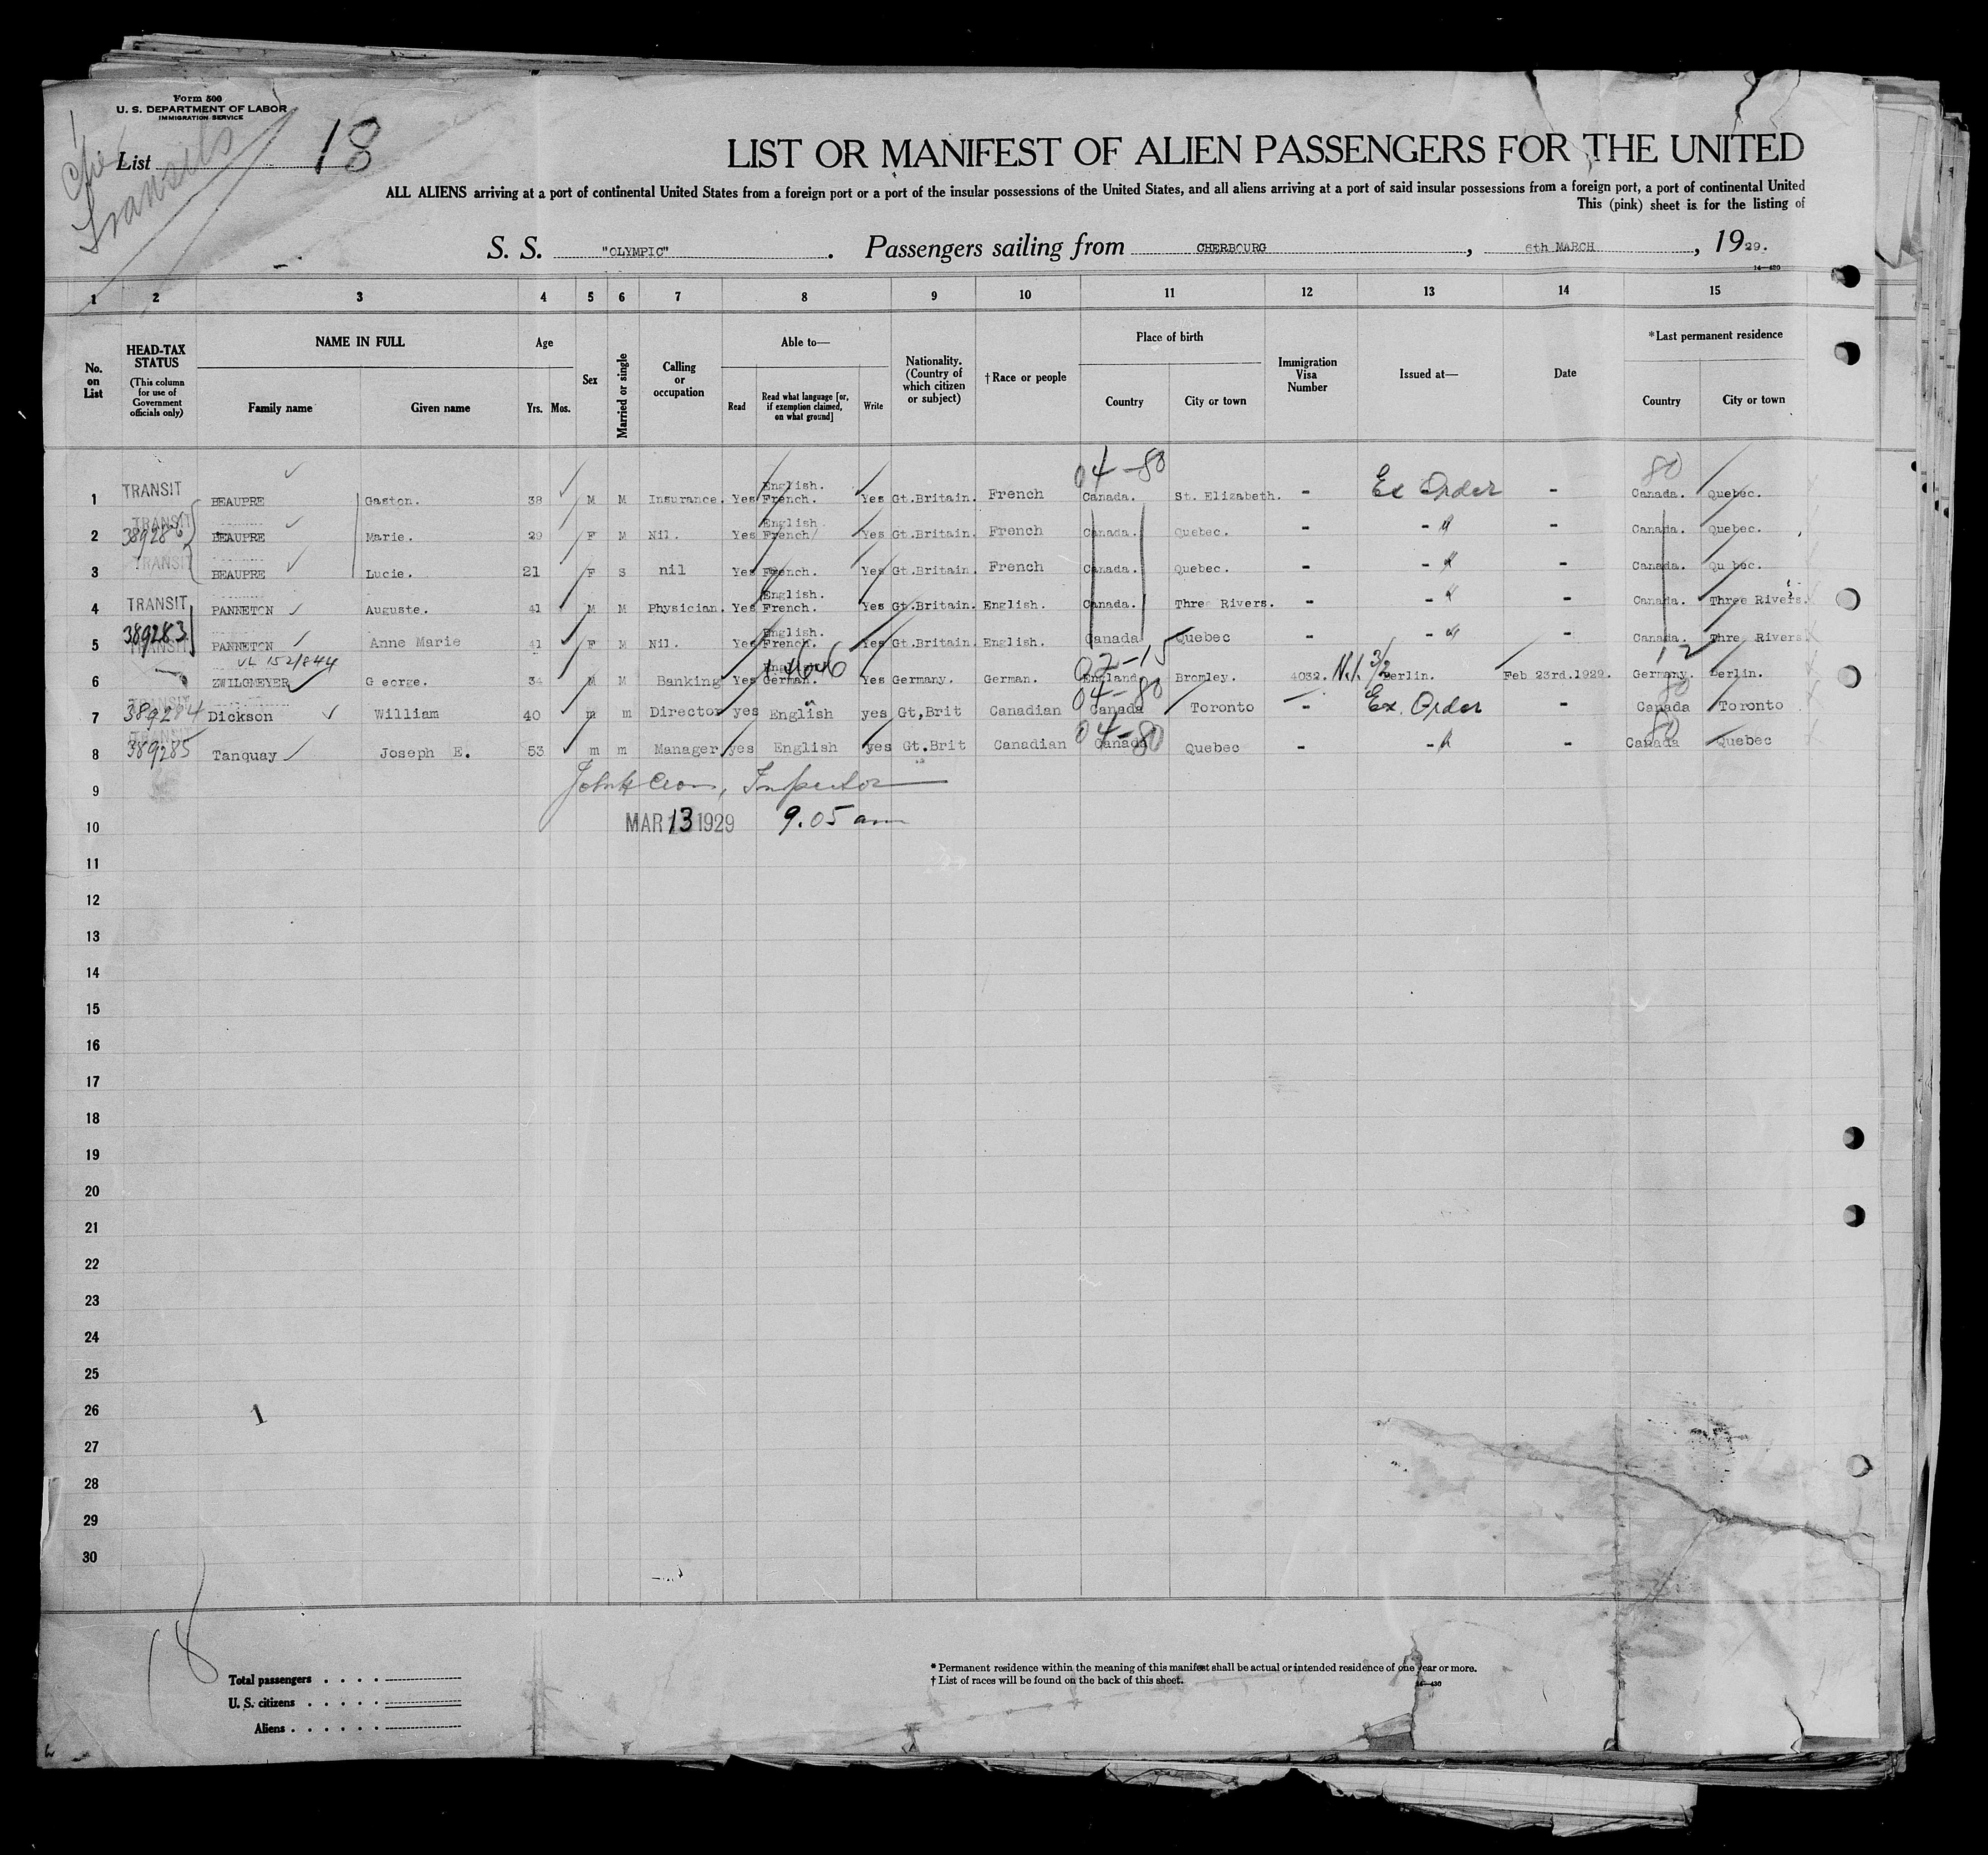 Form 500
U. S. DEPARTMENT OF LABOR
IMMIGRATION SERVICE
List 18
Transits
LIST OR MANIFEST OF ALIEN PASSENGERS FOR THE UNITED
ALL ALIENS arriving at a port of continental United States from a foreign port or a port of the insular possessions of the United States, and all aliens arriving at a port of said insular possessions from a foreign port, a port of continental United
This (pink) sheet is for the listing of
S. S. "OLYMPIC". Passengers sailing from CHERBOURG, 6th MARCH, 1929.
14—430
1 2 3 4 5 6 7 8 9 10 11 12 13 14 15
No. on List
HEAD-TAX STATUS (This column for use of Government officials only)
NAME IN FULL Family name Given name
Age Yrs. Mos.
Sex
Married or single
Calling or occupation
Able to— Read Read what language [or, if exemption claimed, on what ground] Write
Nationality. (Country of which citizen or subject)
†Race or people
Place of birth Country City or town
Immigration Visa Number
Issued at—
Date
*Last permanent residence Country City or town
04-80 80
1 TRANSIT BEAUPRE Gaston. 38 M M Insurance. Yes English. French. Yes Gt.Britain. French Canada. St. Elizabeth. - Ex Order - Canada. Quebec.
2 TRANSIT 389286 BEAUPRE Marie. 29 F M Nil. Yes English French Yes Gt.Britain. French Canada. Quebec. - - " - Canada. Quebec.
3 TRANSIT BEAUPRE Lucie. 21 F S nil Yes French. Yes Gt.Britain. French Canada. Quebec. - " - Canada. Qu bec.
4 TRANSIT PANNETON Auguste. 41 M M Physician. Yes English. French. Yes Gt.Britain. English. Canada. Three Rivers. - - " Canada. Three Rivers.
5 389283 TRANSIT PANNETON Anne Marie 41 F M Nil. Yes English. French. Yes Gt.Britain. English. Canada Quebec - - " - Canada. Thre Rivers.
02-15
6 ZWILGMEYER G eorge. 34 M M Banking Yes German. Yes Germany. German. England Bromley. 4032. Berlin. Feb 23rd.1929. Germany. Berlin.
04-80 80
7 TRANSIT 389284 Dickson William 40 m m Director yes English yes Gt,Brit Canadian Canada Toronto - Ex. Order - Canada Toronto
04-80 80
8 TRANSIT 389285 Tanquay Joseph E. 53 m m Manager yes English yes Gt.Brit Canadian Canada Quebec - - " - Canada Quebec
9 Inspector
10 MAR 13 1929 9.05 am
11
12
13
14
15
16
17
18
19
20
21
22
23
24
25
26 1
27
28
29
30
18
Total passengers
U. S. citizens
Aliens
* Permanent residence within the meaning of this manifest shall be actual or intended residence of one year or more.
† List of races will be found on the back of this sheet.
14—430